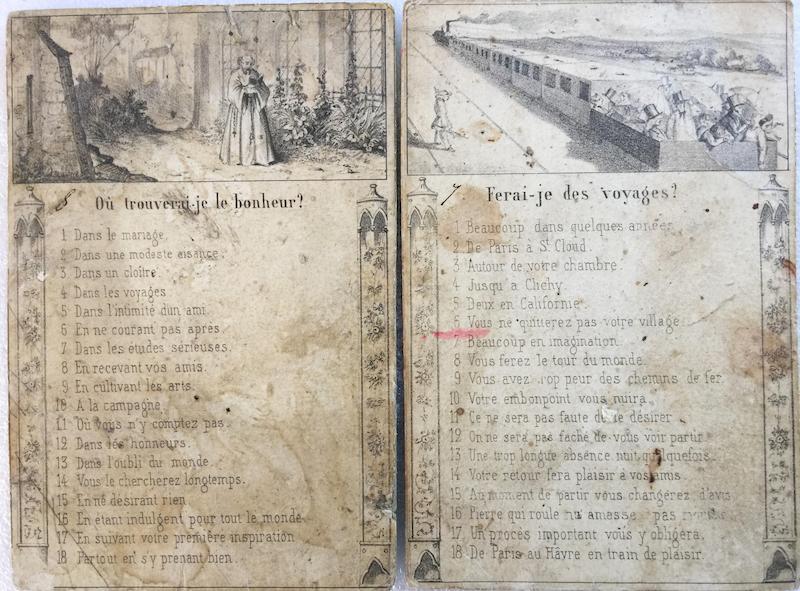 8 Où trouverai-je le bonheur?
1 Dans le mariage
2 Dans une modeste aisance.
3 Dans un cloître.
4 Dans les voyages
5 Dans l'intimité d'un ami.
6 En ne courant pas après.
7 Dans les études sérieuses.
8 En recevant vos amis.
9 En cultivant les arts.
10 A la campagne
11 Où vous n'y comptez pas.
12 Dans les honneurs.
13 Dans l'oubli du monde.
14 Vous le chercherez longtemps.
15 En ne désirant rien
16 En étant indulgent pour tout le monde
17 En suivant votre première inspiration
18 Partout en s'y prenant bien.
7. Ferai-je des voyages?
1 Beaucoup dans quelques années
2 De Paris à St Cloud.
3 Autour de votre chambre.
4 Jusqu'à Clichy.
5 Deux en Californie.
6 Vous ne quitterez pas votre village
7 Beaucoup en imagination.
8 Vous ferez le tour du monde.
9 Vous avez trop peur des chemins de fer.
10 Votre embonpoint vous nuira.
11 Ce ne sera pas faute de le désirer
12 On ne sera pas faché de vous voir partir
13 Une trop longue absence nuit quelquefois.
14 Votre retour fera plaisir à vos amis.
15 Au moment de partir vous changerez d'avis
16 Pierre qui roule n'amasse pas
17 Un procès important vous y obligera.
18 De Paris au Hâvre en train de plaisir.